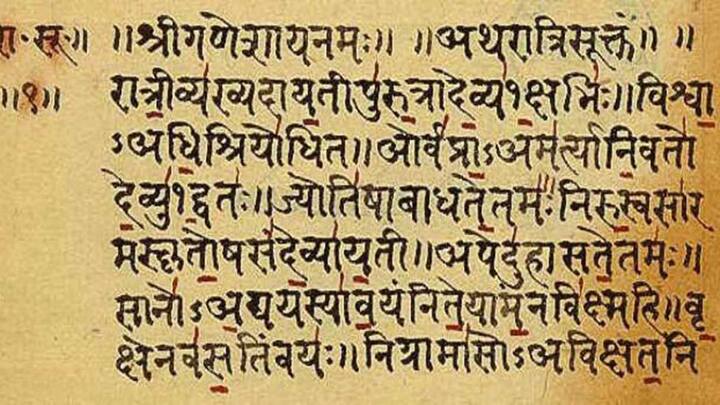 रा॰सू॰॥ ॥श्रीगणेशायनमः॥ ॥अथरात्रिसूक्तं॥ ॥
॥१॥ रात्री॒व्य॑ख्यदाय॒तीपु॑रु॒त्रादे॒व्य१॒॑क्षभिः॑॥विश्वा॒
ऽअधि॒श्रियो॑धित॥ओर्व॑प्रा॒ऽअम॑र्त्यानि॒वतो॑
दे॒व्यु१॒॑द्वतः॑॥ज्योति॑षाबाधते॒तमः॑॥निरु॒स्वसा॑र
मस्कृतो॒षसं॑दे॒व्या॑य॒ती॥अपेदु॑हासते॒तमः॑॥
सानो॑ऽअ॒द्ययस्या॑व॒यंनिते॒याम॒न्नवि॑क्ष्महि॥वृ॒
क्षेनव॑स॒तिंवयः॑॥निग्रामा॑सोऽअविक्षत॒नि